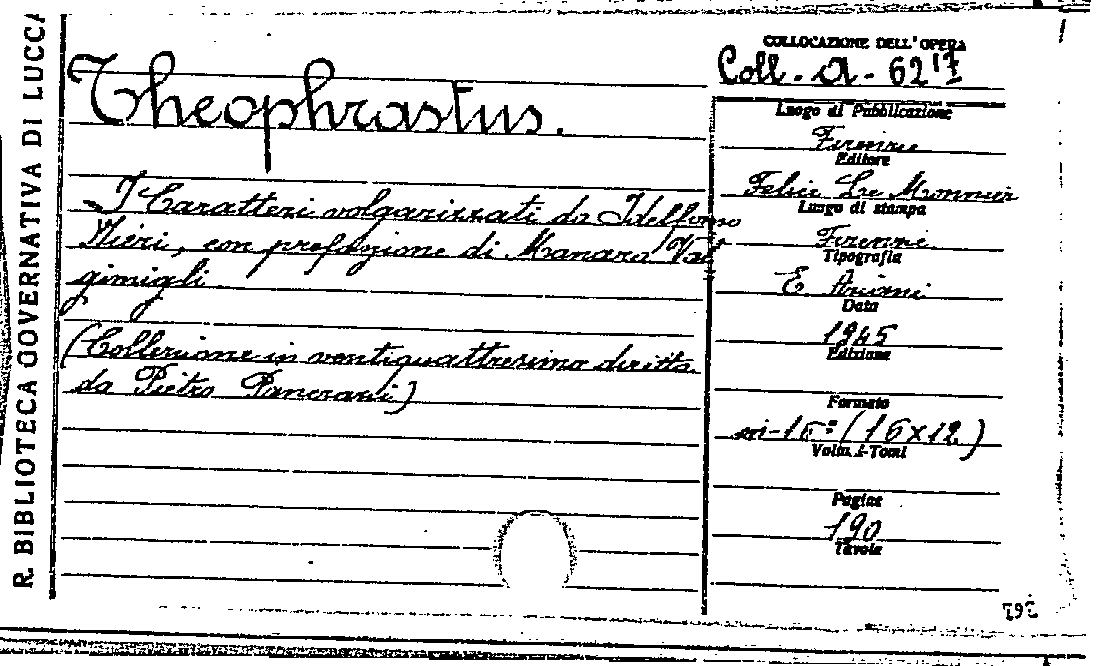 R. BIBLIOTECA GOVERNATIVA DI LUCCA
Theophrastus.
I Caratteri volgarizzati da Idelfonso
Nieri, con prefazione di Manara Val
gimigli
(Collezione in ventiquattresimo diretta
da Pietro Pancrazi)
COLLOCAZIONE DELL'OPERA
Coll. A. 62 17
Luogo di Pubblicazione
Firenze
Editore
Felice Le Monnier
Luogo di stampa
Firenze
Tipografia
E. Ariani
Data
1945
Edizione
Formato
in-16º (16x12)
Volm. i-Tomi
Pagine
190
Tavole